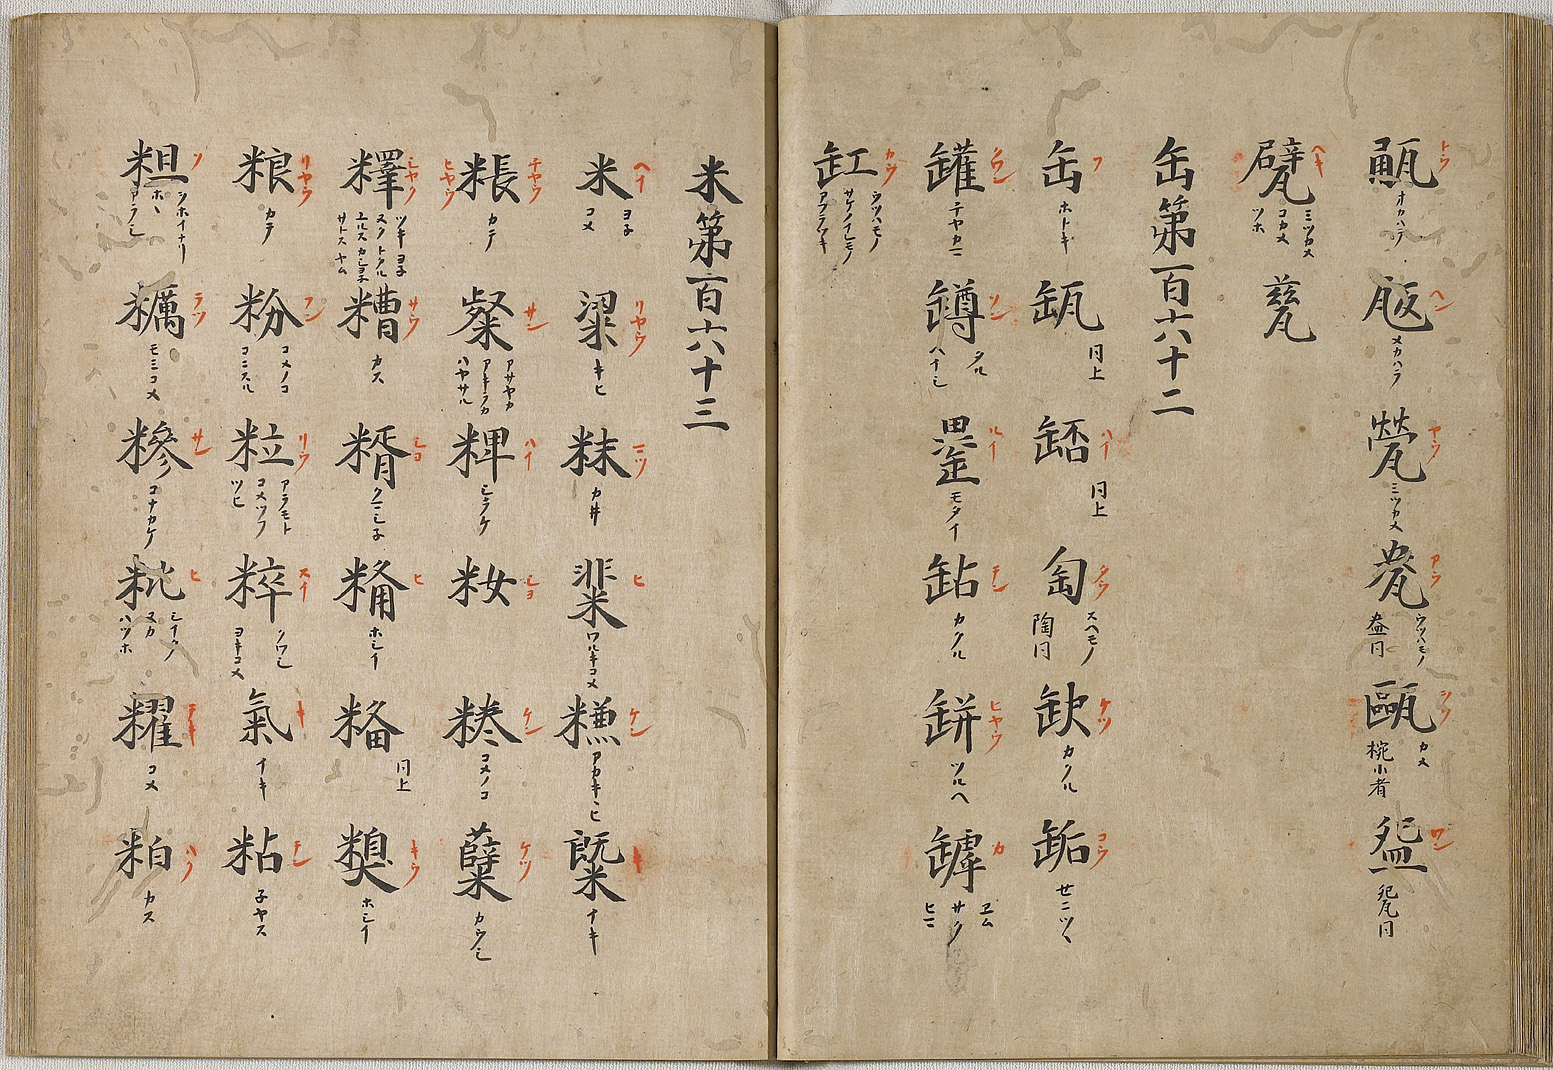 甋 トウ オカハラ 瓪 ヘン メカハラ 甇 ヤウ ミツカメ 瓫 アウ ウツハモノ 盎同 甌 シウ カメ 椀小者 ワン 同
甓 ヘキ ミツカメ コカメ ツホ 甆
缶第百六十二
缶 フ ホトキ 缻 同上 ハイ 同上 匋 タウ スヘモノ 陶同 缼 ケツ カクル 缿 コウ
罐 クワン テヤカニ 罇 ソン タル ハナシ 罍 ルイ モタイ 鉆 テン カクル 缾 ヒヤウ ツルヘ 罅 カ ヱム サク ヒニ
缸 カウ ウツハモノ サケノイレモノ アフラツキ
米第一百六十三
米 ヘイ ヨネ コメ 粱 リヤウ キヒ 粖 ニツ カ井 ヒ ワルキコメ 𥻧 ケン アカキヽヒ イキ
粻 チヤウ ヒヤウ カテ 粲 サン アサヤカ アキラカ ハヤサル 粺 ハイ シラケ 籹 シヨ 粣 ケン コメノコ 糵 ケツ カウシ
釋 シヤク ツキ ヨネ ヌク トクル ユルス サトス ヤム 糟 サウ カス 糈 シヨ クニシネ 糒 ヒ ホシイ 同上 糗 キウ ホシイ
粮 リヤウ カテ 粉 フン コメノコ コニスル 粒 リウ アラモト コメツフ ツヒ 粹 スイ クワシ ヨキコメ 氣 キ イキ 粘 テン ネヤス
粗 ソ シホイナリ ホヽ アラシ 糲 ラツ モミコメ 糝 サン コナカケ 粃 ヒ シイラ ヌカ ハツホ 糶 テキ コメ 粕 ハク カス